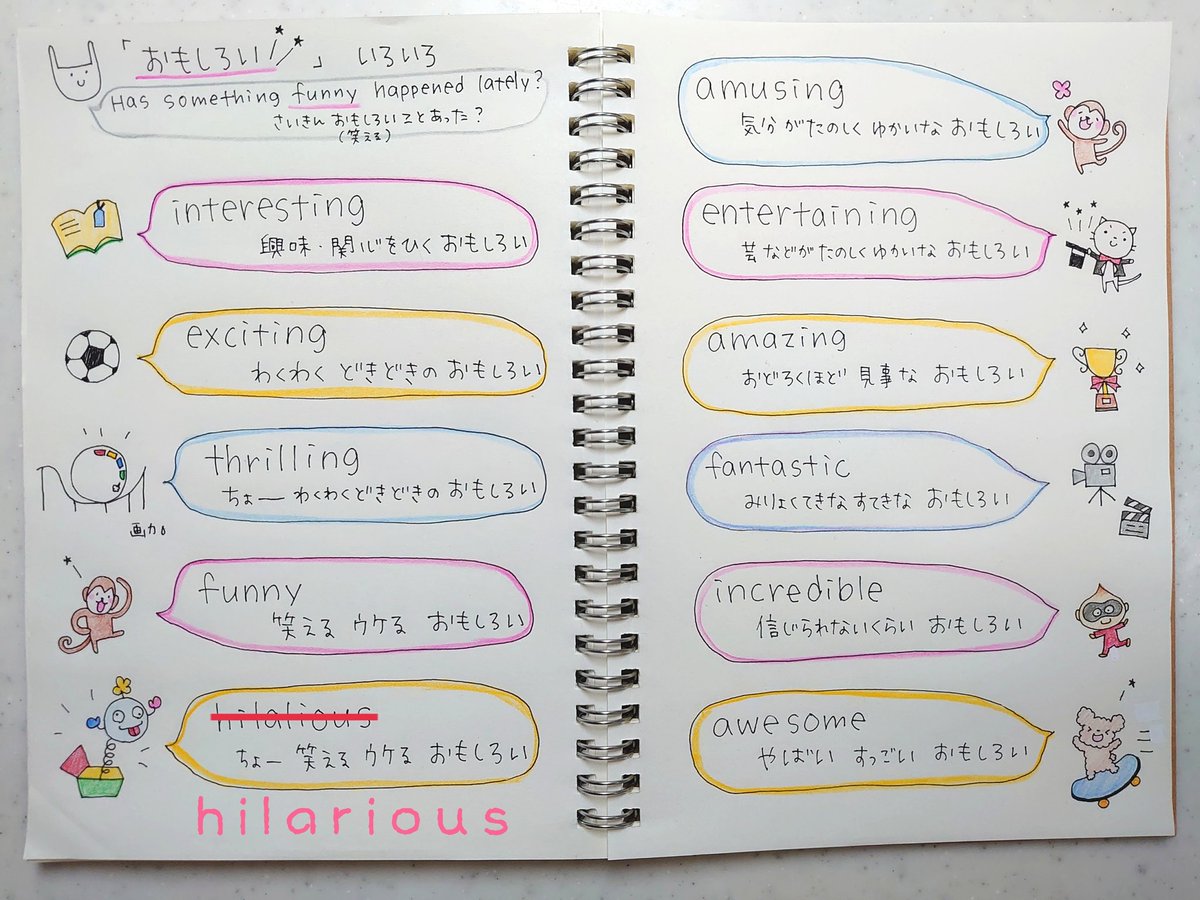 「おもしろい」 いろいろ
Has something funny happened lately?
さいきん おもしろいことあった?
(笑える)
interesting
興味・関心をひく おもしろい
exciting
わくわく どきどきの おもしろい
thrilling
ちょー わくわくどきどきの おもしろい
画力
funny
笑える ウケる おもしろい
hilalious
ちょー 笑える ウケる おもしろい
hilarious
amusing
気分がたのしく ゆかいな おもしろい
entertaining
芸などがたのしくゆかいな おもしろい
amazing
おどろくほど 見事な おもしろい
fantastic
みりょくてきな すてきな おもしろい
incredible
信じられないくらい おもしろい
awesome
やばい すっごい おもしろい